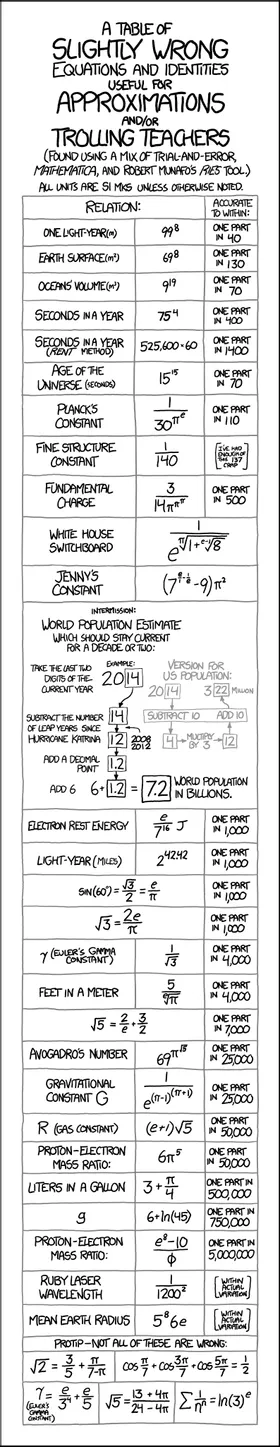 A TABLE OF
SLIGHTLY WRONG
EQUATIONS AND IDENTITIES
USEFUL FOR
APPROXIMATIONS
AND/OR
TROLLING TEACHERS
(FOUND USING A MIX OF TRIAL-AND-ERROR,
MATHEMATICA, AND ROBERT MUNAFO'S RIES TOOL.)
ALL UNITS ARE SI MKS UNLESS OTHERWISE NOTED.
RELATION: ACCURATE TO WITHIN:
ONE LIGHT-YEAR(m) 99⁸ ONE PART IN 40
EARTH SURFACE(m²) 69⁸ ONE PART IN 130
OCEANS' VOLUME(m³) 9¹⁹ ONE PART IN 70
SECONDS IN A YEAR 75⁴ ONE PART IN 400
SECONDS IN A YEAR (RENT METHOD) 525,600·60 ONE PART IN 1400
AGE OF THE UNIVERSE (SECONDS) 15¹⁵ ONE PART IN 70
PLANCK'S CONSTANT 1/30^π^e ONE PART IN 110
FINE STRUCTURE CONSTANT 1/140 [I'VE HAD ENOUGH OF THIS 137 CRAP]
FUNDAMENTAL CHARGE 3/14π^π^π ONE PART IN 500
WHITE HOUSE SWITCHBOARD 1/e^(π√(1+(e-1)√8))
JENNY'S CONSTANT (7^(e/1-1/e)-9)π²
INTERMISSION:
WORLD POPULATION ESTIMATE
WHICH SHOULD STAY CURRENT
FOR A DECADE OR TWO:
TAKE THE LAST TWO DIGITS OF THE CURRENT YEAR
EXAMPLE:
20[14]
[14]
SUBTRACT THE NUMBER OF LEAP YEARS SINCE HURRICANE KATRINA
[12] 2008 2012
ADD A DECIMAL POINT
[1.2]
ADD 6 6+[1.2] = [7.2] WORLD POPULATION IN BILLIONS.
VERSION FOR US POPULATION:
20[14] 3[22] MILLION
SUBTRACT 10 ADD 10
[4] MULTIPLY BY 3 [12]
ELECTRON REST ENERGY e/7¹⁶ J ONE PART IN 1,000
LIGHT-YEAR(MILES) 2^42.42 ONE PART IN 1,000
SIN(60°)=√3/2=e/π ONE PART IN 1,000
√3=2e/π ONE PART IN 1,000
γ(EULER'S GAMMA CONSTANT) 1/√3 ONE PART IN 4,000
FEET IN A METER 5/(e√π) ONE PART IN 4,000
√5=2/e+3/2 ONE PART IN 7,000
AVOGADRO'S NUMBER 69^π^√5 ONE PART IN 25,000
GRAVITATIONAL CONSTANT G 1/e^(π-1)^(π+1) ONE PART IN 25,000
R (GAS CONSTANT) (e+1)√5 ONE PART IN 50,000
PROTON-ELECTRON MASS RATIO: 6π⁵ ONE PART IN 50,000
LITERS IN A GALLON 3+π/4 ONE PART IN 500,000
g 6+ln(45) ONE PART IN 750,000
PROTON-ELECTRON MASS RATIO: (e⁸-10)/ϕ ONE PART IN 5,000,000
RUBY LASER WAVELENGTH 1/1200² [WITHIN ACTUAL VARIATION]
MEAN EARTH RADIUS 5⁸6e [WITHIN ACTUAL VARIATION]
PROTIP-NOT ALL OF THESE ARE WRONG:
√2=3/5+π/(7-π) cos π/7+cos 3π/7+cos 5π/7=1/2
γ(EULER'S GAMMA CONSTANT)=e/3⁴+e/5 √5=(13+4π)/(24-4π) Σ1/nⁿ=ln(3)^e